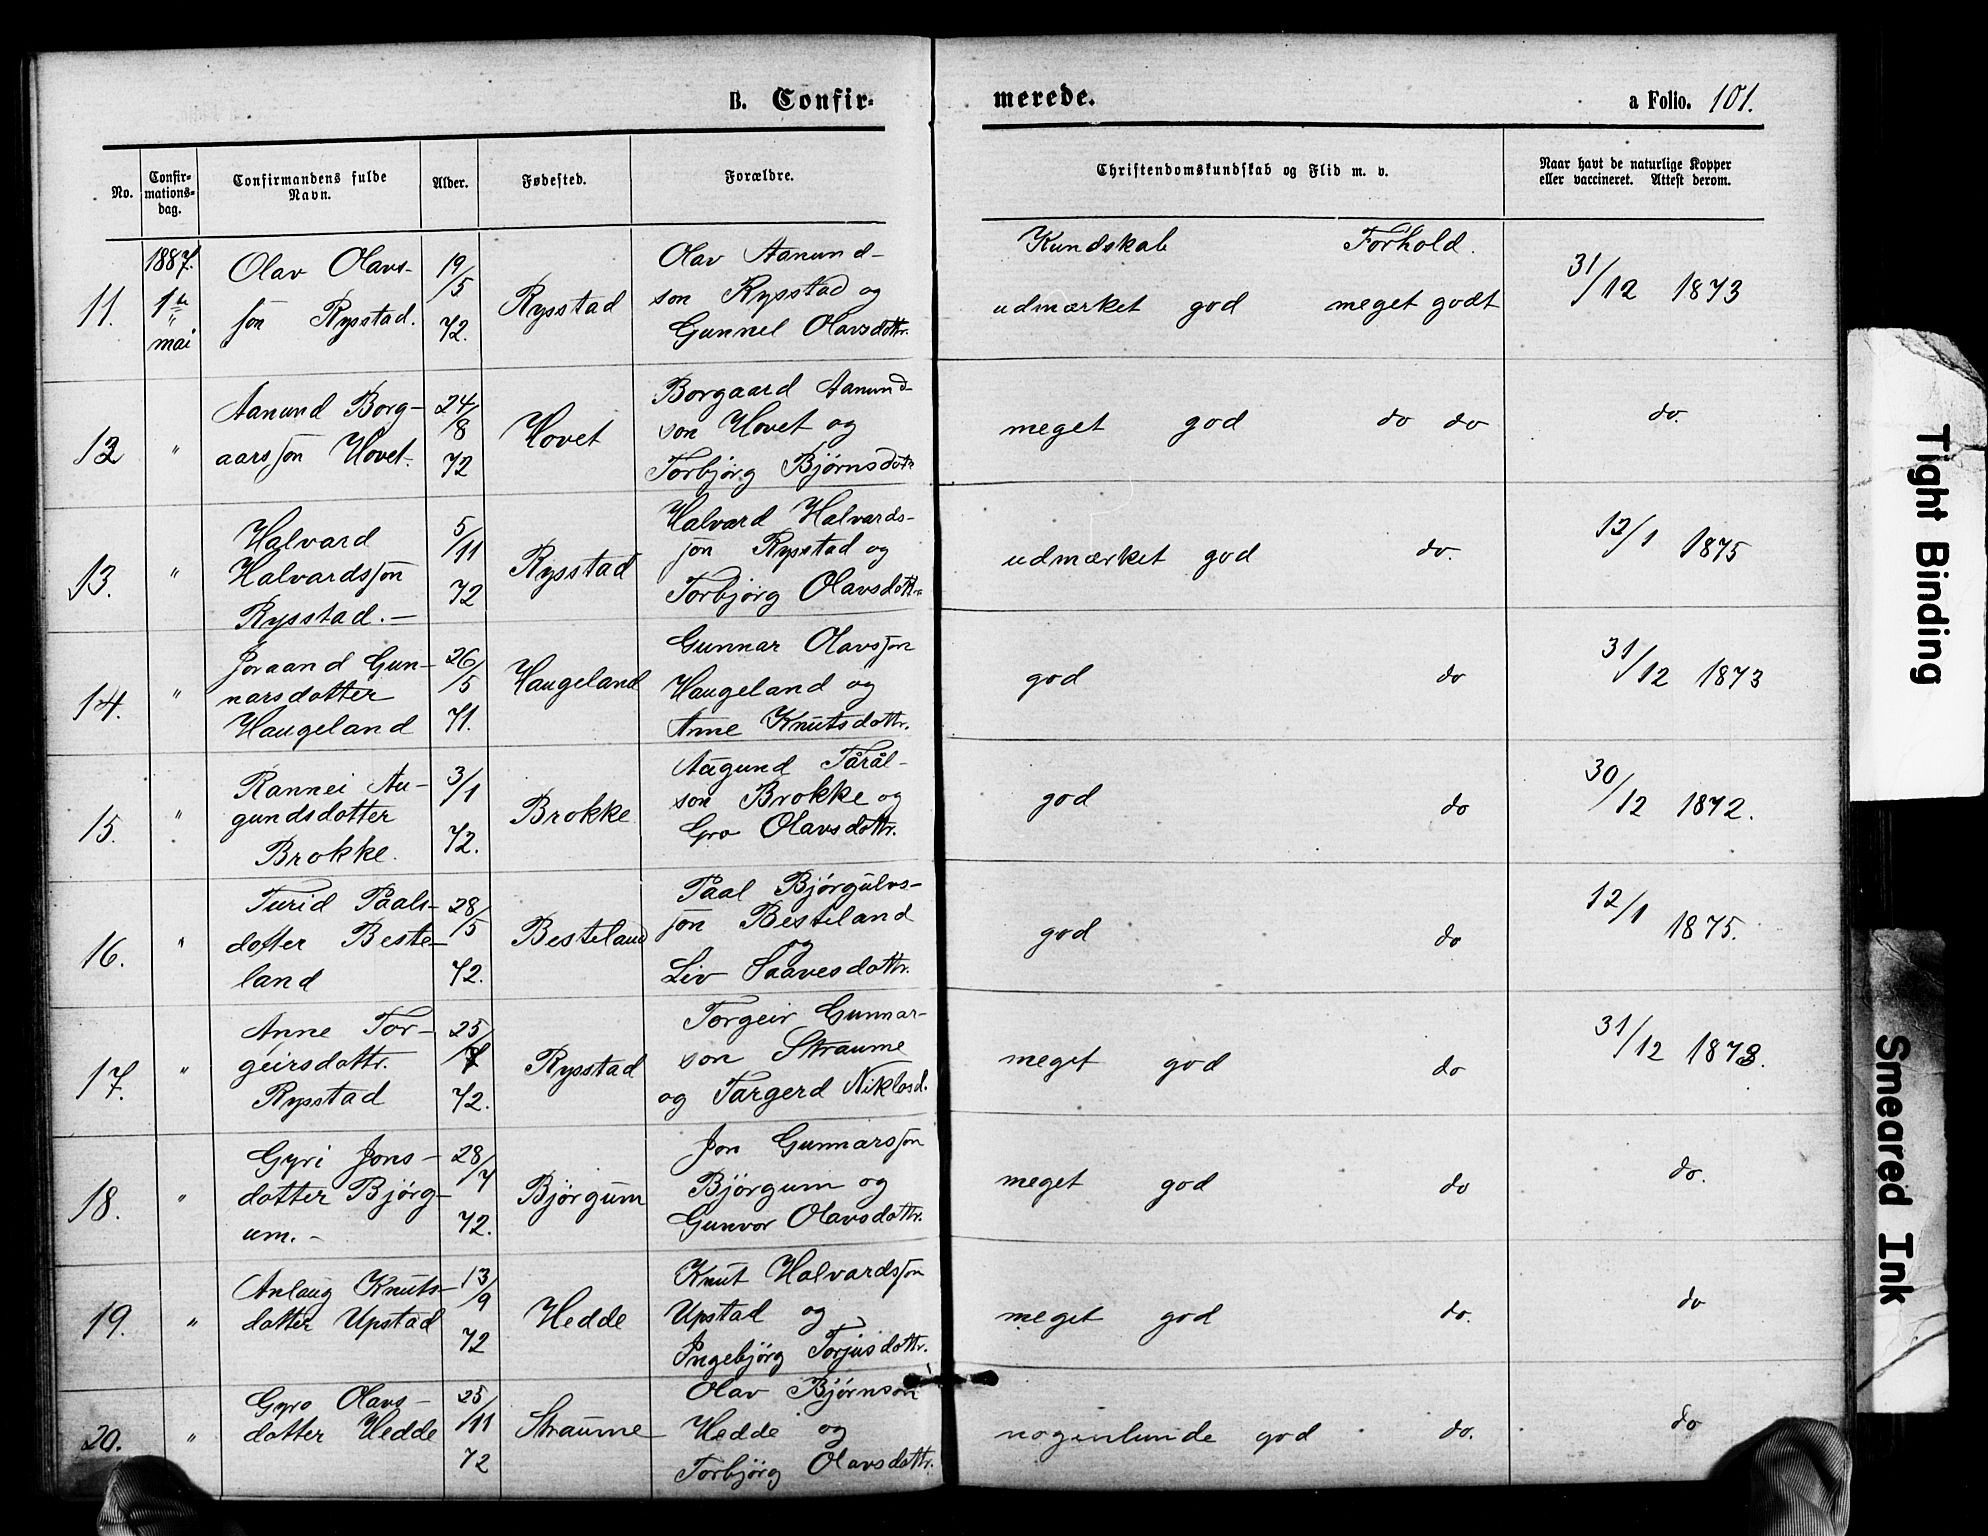 B. Confir-
merede.
a Folio. 101.
No.
Confir-
mations-
dag.
Confirmandens fulde
Navn.
Alder.
Fødested.
Forældre.
Christendomskundskab og Flid m. v.
Naar havt de naturlige Kopper
eller vaccineret. Attest derom.
Kundskab Forhold.
11.
1887.
1ste
mai
Olav Olavs-
son Rysstad.
19/5
72.
Rysstad
Olav Aanund-
son Rysstad og
Gunnel Olavsdottr.
udmærket god meget godt
31/12 1873
12
"
Aanund Borg-
aarsson Hovet.
24/8
72
Hovet
Borgaard Aanund-
son Hovet og
Torbjørg Bjørnsdotr
meget god do do
do.
13.
"
Halvard
Halvardsson
Rysstad.-
5/11
72
Rysstad
Halvard Halvards-
son Rysstad og
Torbjørg Olavsdottr
udmærket god do.
12/1 1875
14.
"
Joraand Gun-
narsdotter
Haugeland
26/5
71.
Haugeland
Gunnar Olavsson
Haugeland og
Anne Knutsdottr.
god do
31/12 1873
15.
"
Rannei Au-
gundsdotter
Brokke.
3/1
72.
Brokke
Augund Tårål-
son Brokke og
Gro Olavsdottr.
god do
30/12 1872.
16.
"
Turid Paals-
dotter Beste-
land
28/5
72.
Besteland
Paal Bjørgulvs-
son Besteland
og
Liv Saavesdottr.
god do
12/1
1875.
17.
"
Anne Tor-
geirsdottr.
Rysstad
25/
72.
Rysstad
Torgeir Gunnar-
son Straume
og Targerd Niklosd.
meget god do
31/12 1873.
18.
"
Gyri Jons-
dotter Bjørg-
um.-
28/7
72.
Bjørgum
Jon Gunnarsson
Bjørgum og
Gunvor Olavsdottr.
meget god do
do.
19.
"
Anlaug Knuts-
dotter Upstad
13/9
72
Hedde
Knut Halvardsson
Upstad og
Ingebjørg Torjusdottr.
meget god do.
do
20.
"
Gyro Olavs-
dotter Hedde
25/11
72
Straume
Olav Bjørnson
Hedde og
Torbjörg Olavsdottr.
nogenlunde god do.
do
Tight Binding
Smeared Ink